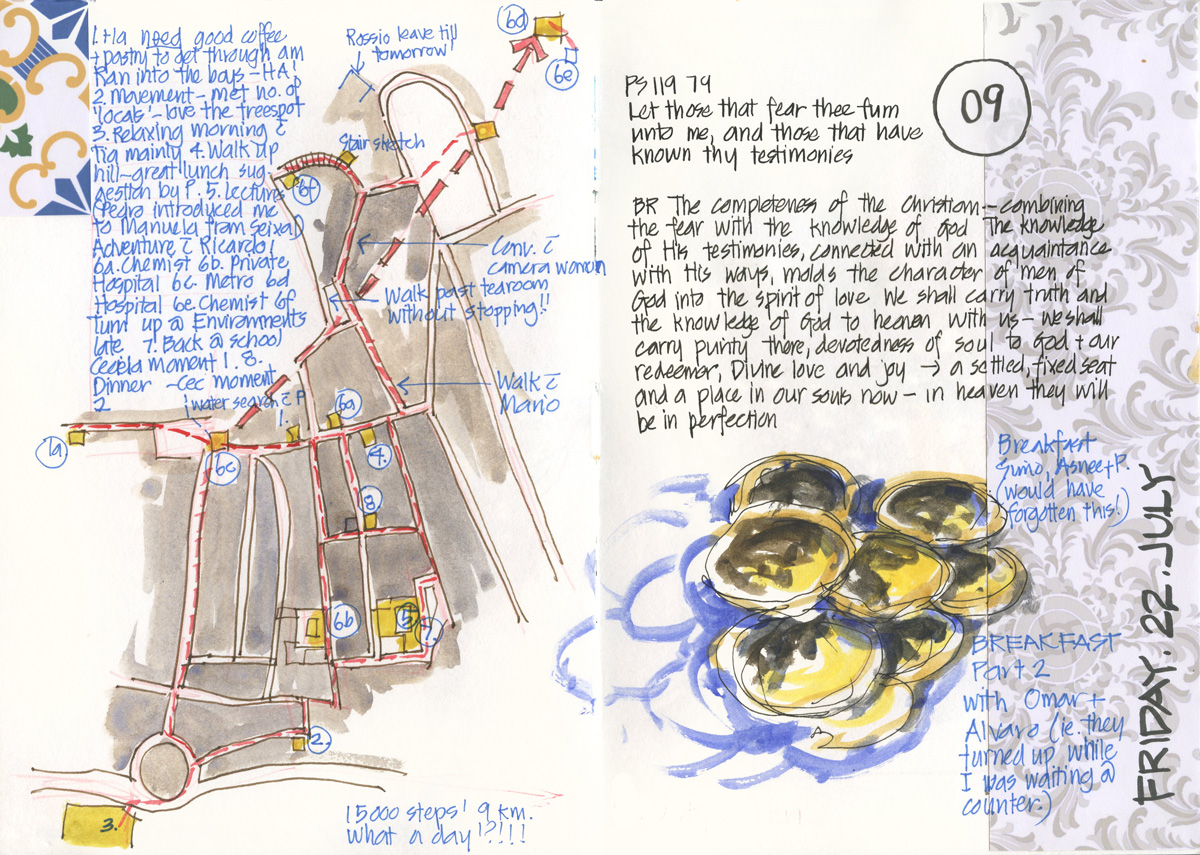 1.+1a need good coffee
+ pastry to get through am
Ran into the boys - HA!
2. Movement - met no. of
'locals' - love the treespot
3. Relaxing morning c̄
Tia mainly 4. Walk up
hill - great lunch sug-
gestion by P. 5. Lecture
(Pedro introduced me
to Manuela from Seixal)
Adventure c̄ Ricardo!
6a. Chemist 6b. Private
Hospital 6c. Metro 6d
Hospital 6e. Chemist 6f.
Turn up @ Environments
late 7. Back @ school
Cecilia moment 1. 8.
Dinner - Cec moment
2
Rossio leave till
tomorrow!
6d
6e
Stair sketch
6f
Conv. c̄
camera woman
Walk past tearoom
without stopping!!
Walk c̄
Mario
water search c̄ P
1.
1a
6c
6a
4.
8
6b
5
7.
2.
3.
15000 steps! 9 km.
What a day!?!!!
PS 119 79
Let those that fear thee turn
unto me, and those that have
known thy testimonies
09
BR The completeness of the Christian - combining
the fear with the knowledge of God The knowledge
of His testimonies, connected with an acquaintance
with His ways, molds the character of men of
God into the spirit of love We shall carry truth and
the knowledge of God to heaven with us - we shall
carry purity there, devotedness of soul to God + our
redeemer, Divine love and joy → a settled, fixed seat
and a place in our souls now - in heaven they will
be in perfection
Breakfast
Sumo, Asnee + P.
(would have
forgotten this!)
BREAKFAST
Part 2
with Omar +
Alvaro (ie. they
turned up while
I was waiting @
counter.)
FRIDAY. 22. JULY